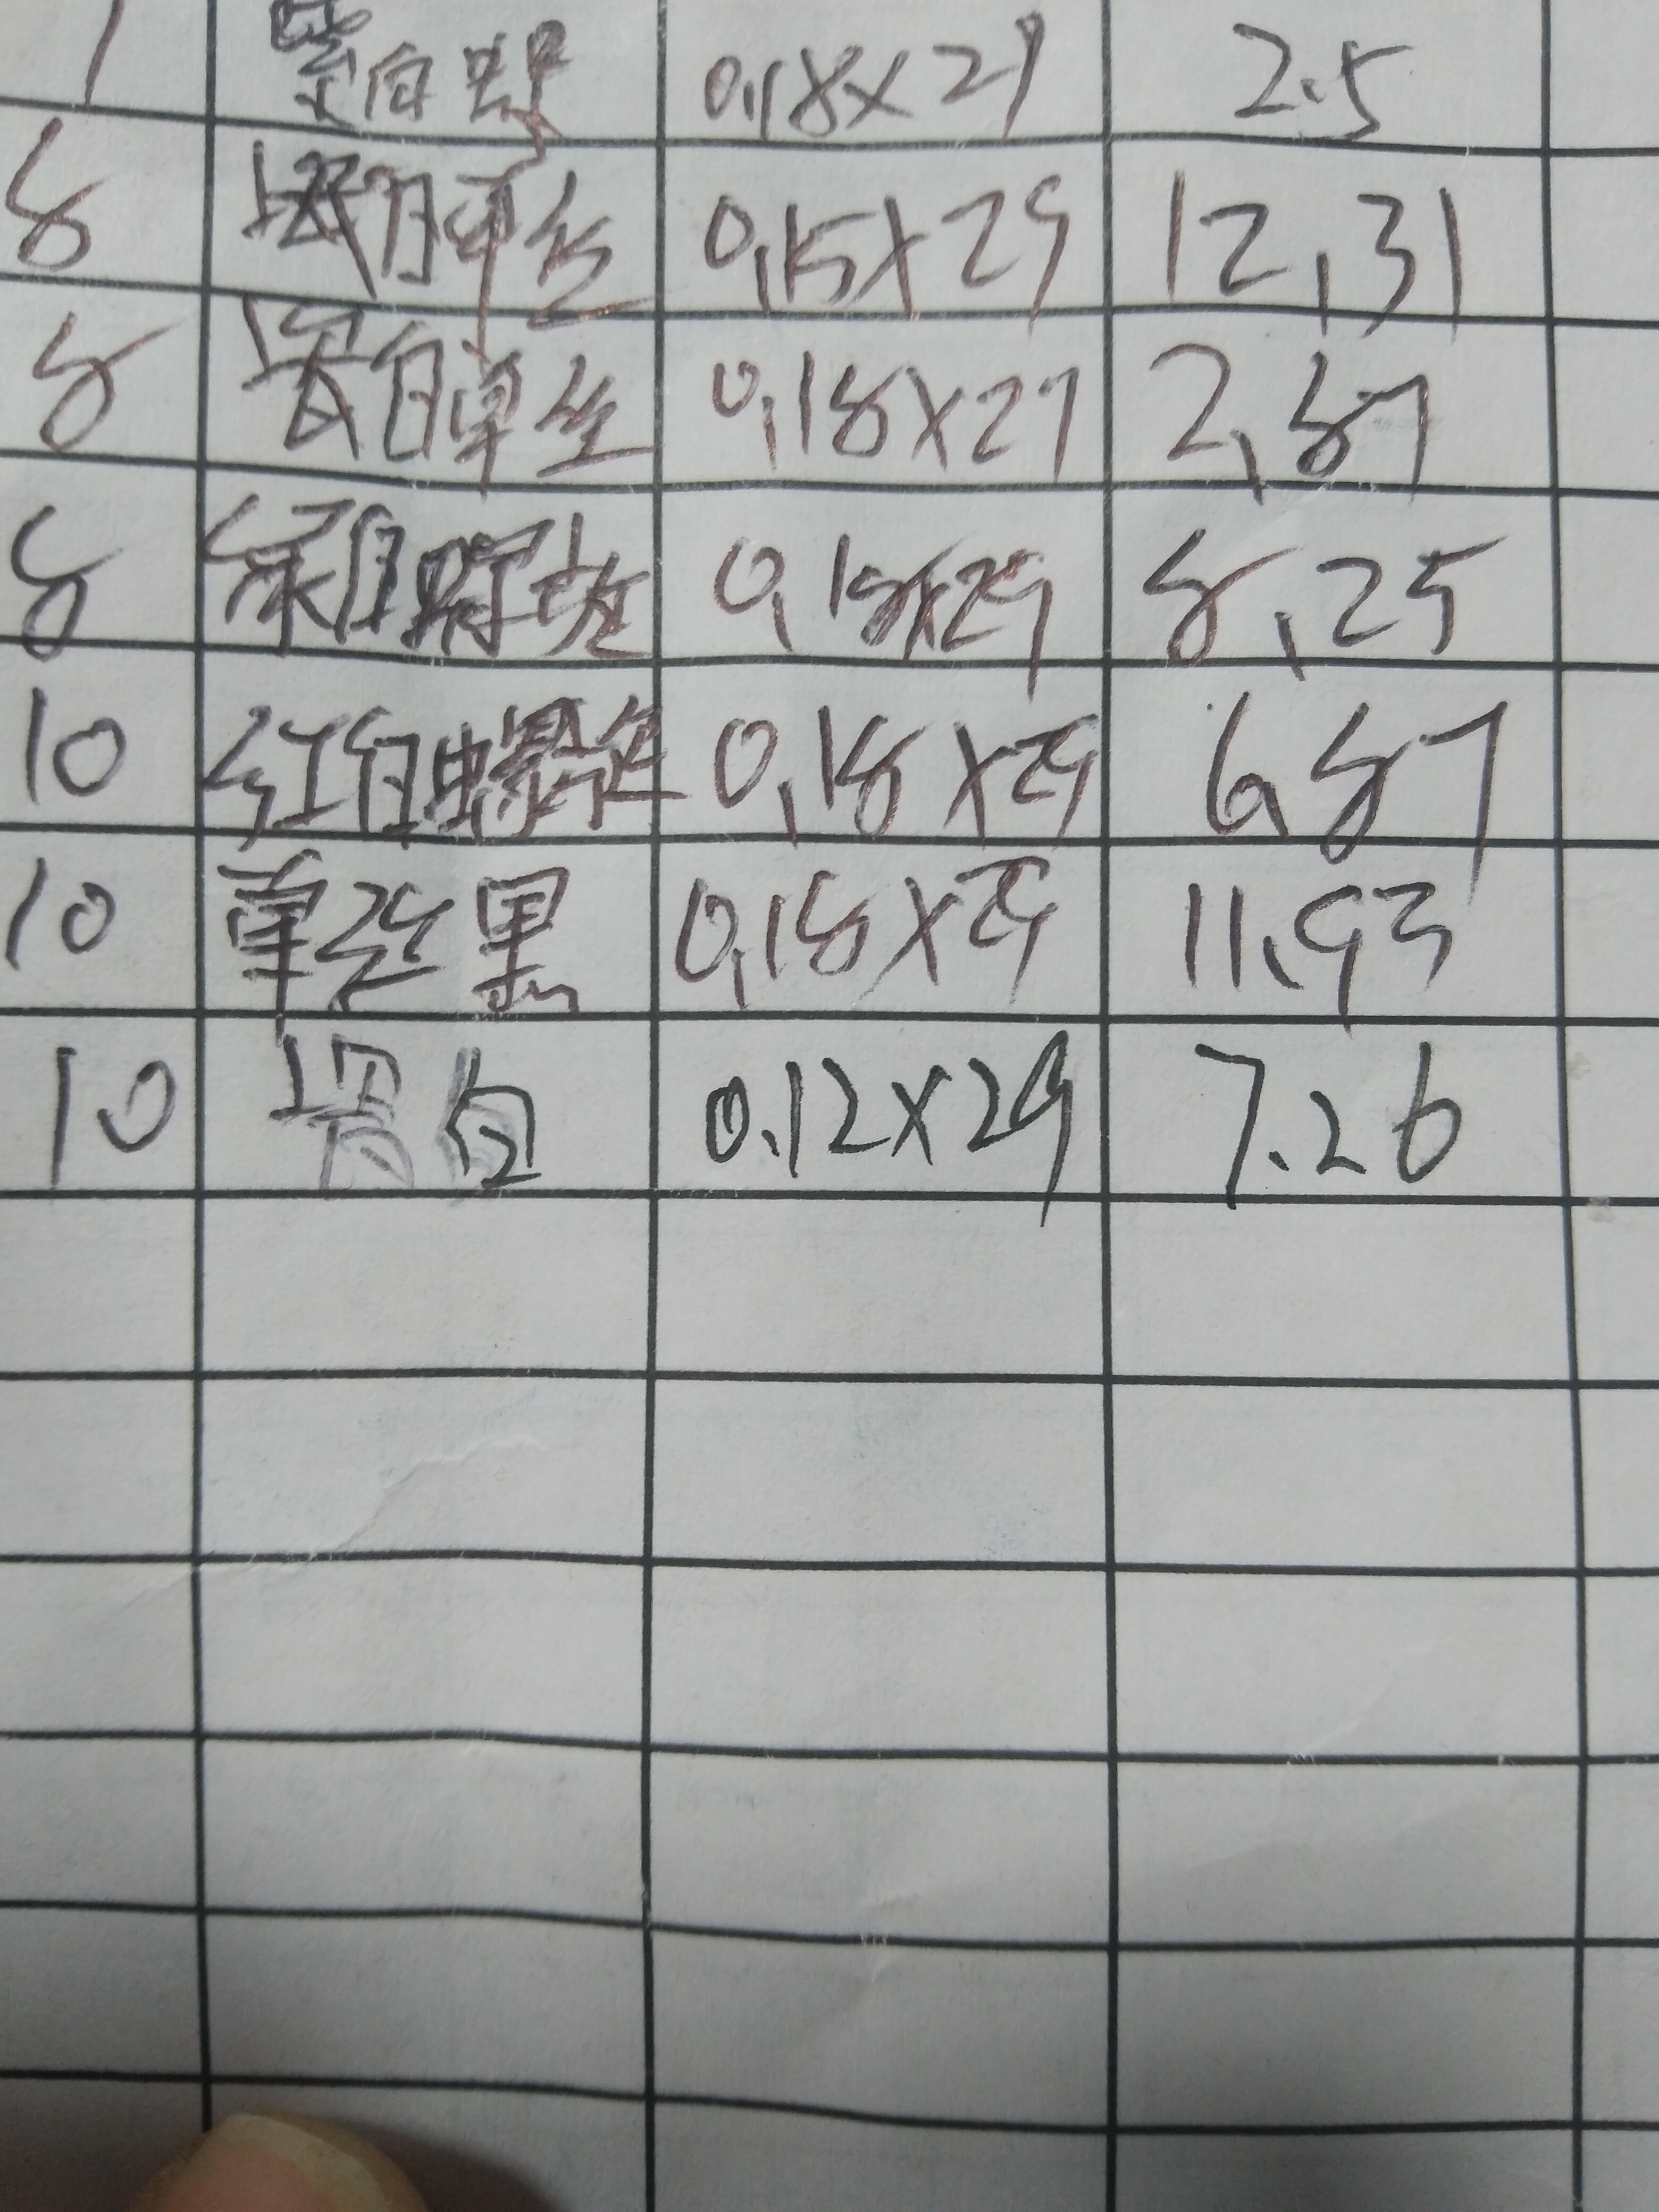 0.18×29 2.5
8 单丝 0.15×29 12.31
8 白单丝 0.18×27 2.87
8 绿白 0.18×29 8.25
10 红白螺旋 0.18×29 6.87
10 单丝黑 0.18×29 11.93
10 白 0.12×29 7.26